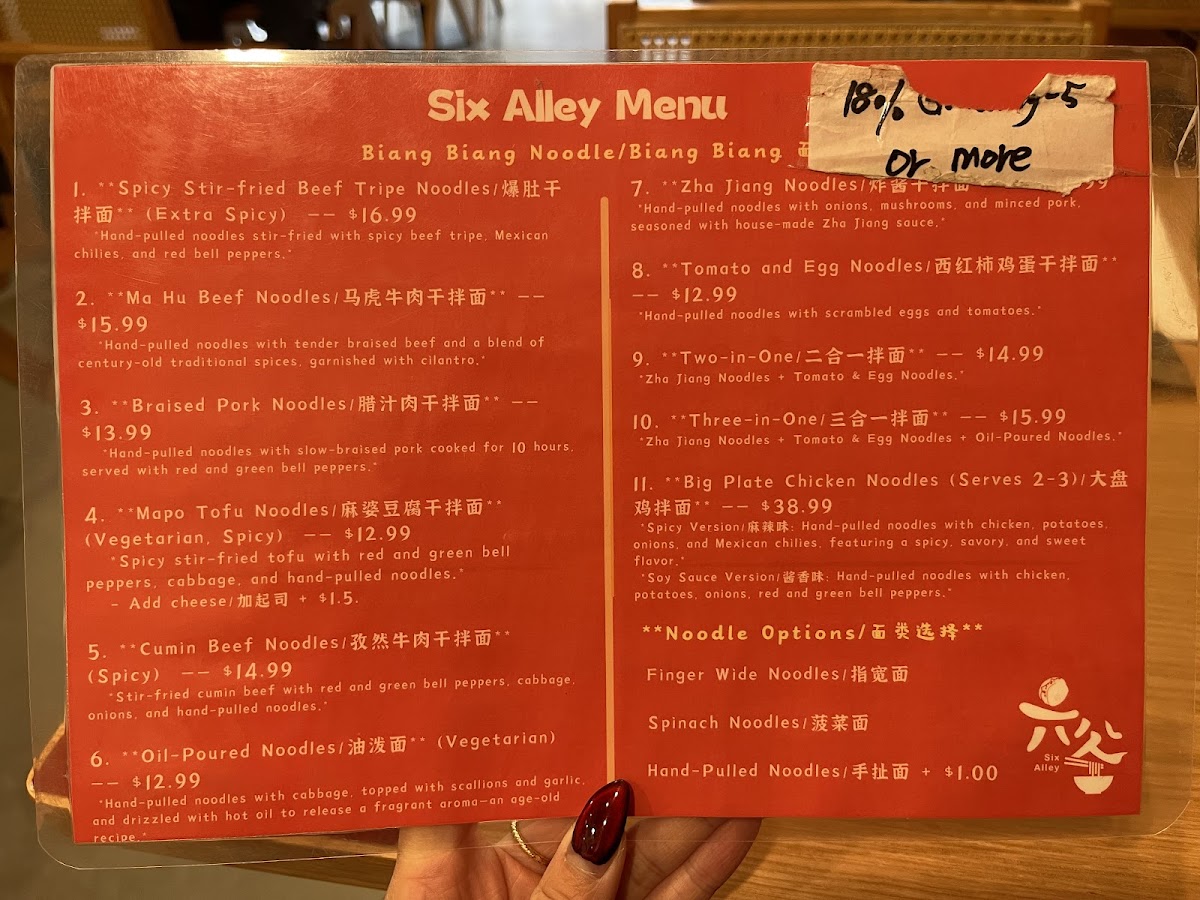 Six Alley Menu
18% G
-5
or more
Biang Biang Noodle/Biang Biang 面
1. **Spicy Stir-fried Beef Tripe Noodles/爆肚干
拌面** (Extra Spicy) -- $16.99
*Hand-pulled noodles stir-fried with spicy beef tripe, Mexican
chilies, and red bell peppers.*
2. **Ma Hu Beef Noodles/马虎牛肉干拌面** --
$15.99
*Hand-pulled noodles with tender braised beef and a blend of
century-old traditional spices, garnished with cilantro.*
3. **Braised Pork Noodles/腊汁肉干拌面** --
$13.99
*Hand-pulled noodles with slow-braised pork cooked for 10 hours,
served with red and green bell peppers.*
4. **Mapo Tofu Noodles/麻婆豆腐干拌面**
(Vegetarian, Spicy) -- $12.99
*Spicy stir-fried tofu with red and green bell
peppers, cabbage, and hand-pulled noodles.*
- Add cheese/加起司 + $1.5.
5. **Cumin Beef Noodles/孜然牛肉干拌面**
(Spicy) -- $14.99
*Stir-fried cumin beef with red and green bell peppers, cabbage,
onions, and hand-pulled noodles.*
6. **Oil-Poured Noodles/油泼面** (Vegetarian)
-- $12.99
*Hand-pulled noodles with cabbage, topped with scallions and garlic,
and drizzled with hot oil to release a fragrant aroma—an age-old
recipe.*
7. **Zha Jiang Noodles/炸酱干拌面
*Hand-pulled noodles with onions, mushrooms, and minced pork,
seasoned with house-made Zha Jiang sauce.*
8. **Tomato and Egg Noodles/西红柿鸡蛋干拌面**
-- $12.99
*Hand-pulled noodles with scrambled eggs and tomatoes.*
9. **Two-in-One/二合一拌面** -- $14.99
*Zha Jiang Noodles + Tomato & Egg Noodles.*
10. **Three-in-One/三合一拌面** -- $15.99
*Zha Jiang Noodles + Tomato & Egg Noodles + Oil-Poured Noodles.*
11. **Big Plate Chicken Noodles (Serves 2-3)/大盘
鸡拌面** -- $38.99
*Spicy Version/麻辣味: Hand-pulled noodles with chicken, potatoes,
onions, and Mexican chilies, featuring a spicy, savory, and sweet
flavor.*
*Soy Sauce Version/酱香味: Hand-pulled noodles with chicken,
potatoes, onions, red and green bell peppers.*
**Noodle Options/面类选择**
Finger Wide Noodles/指宽面
Spinach Noodles/菠菜面
Hand-Pulled Noodles/手扯面 + $1.00
六
Six
Alley